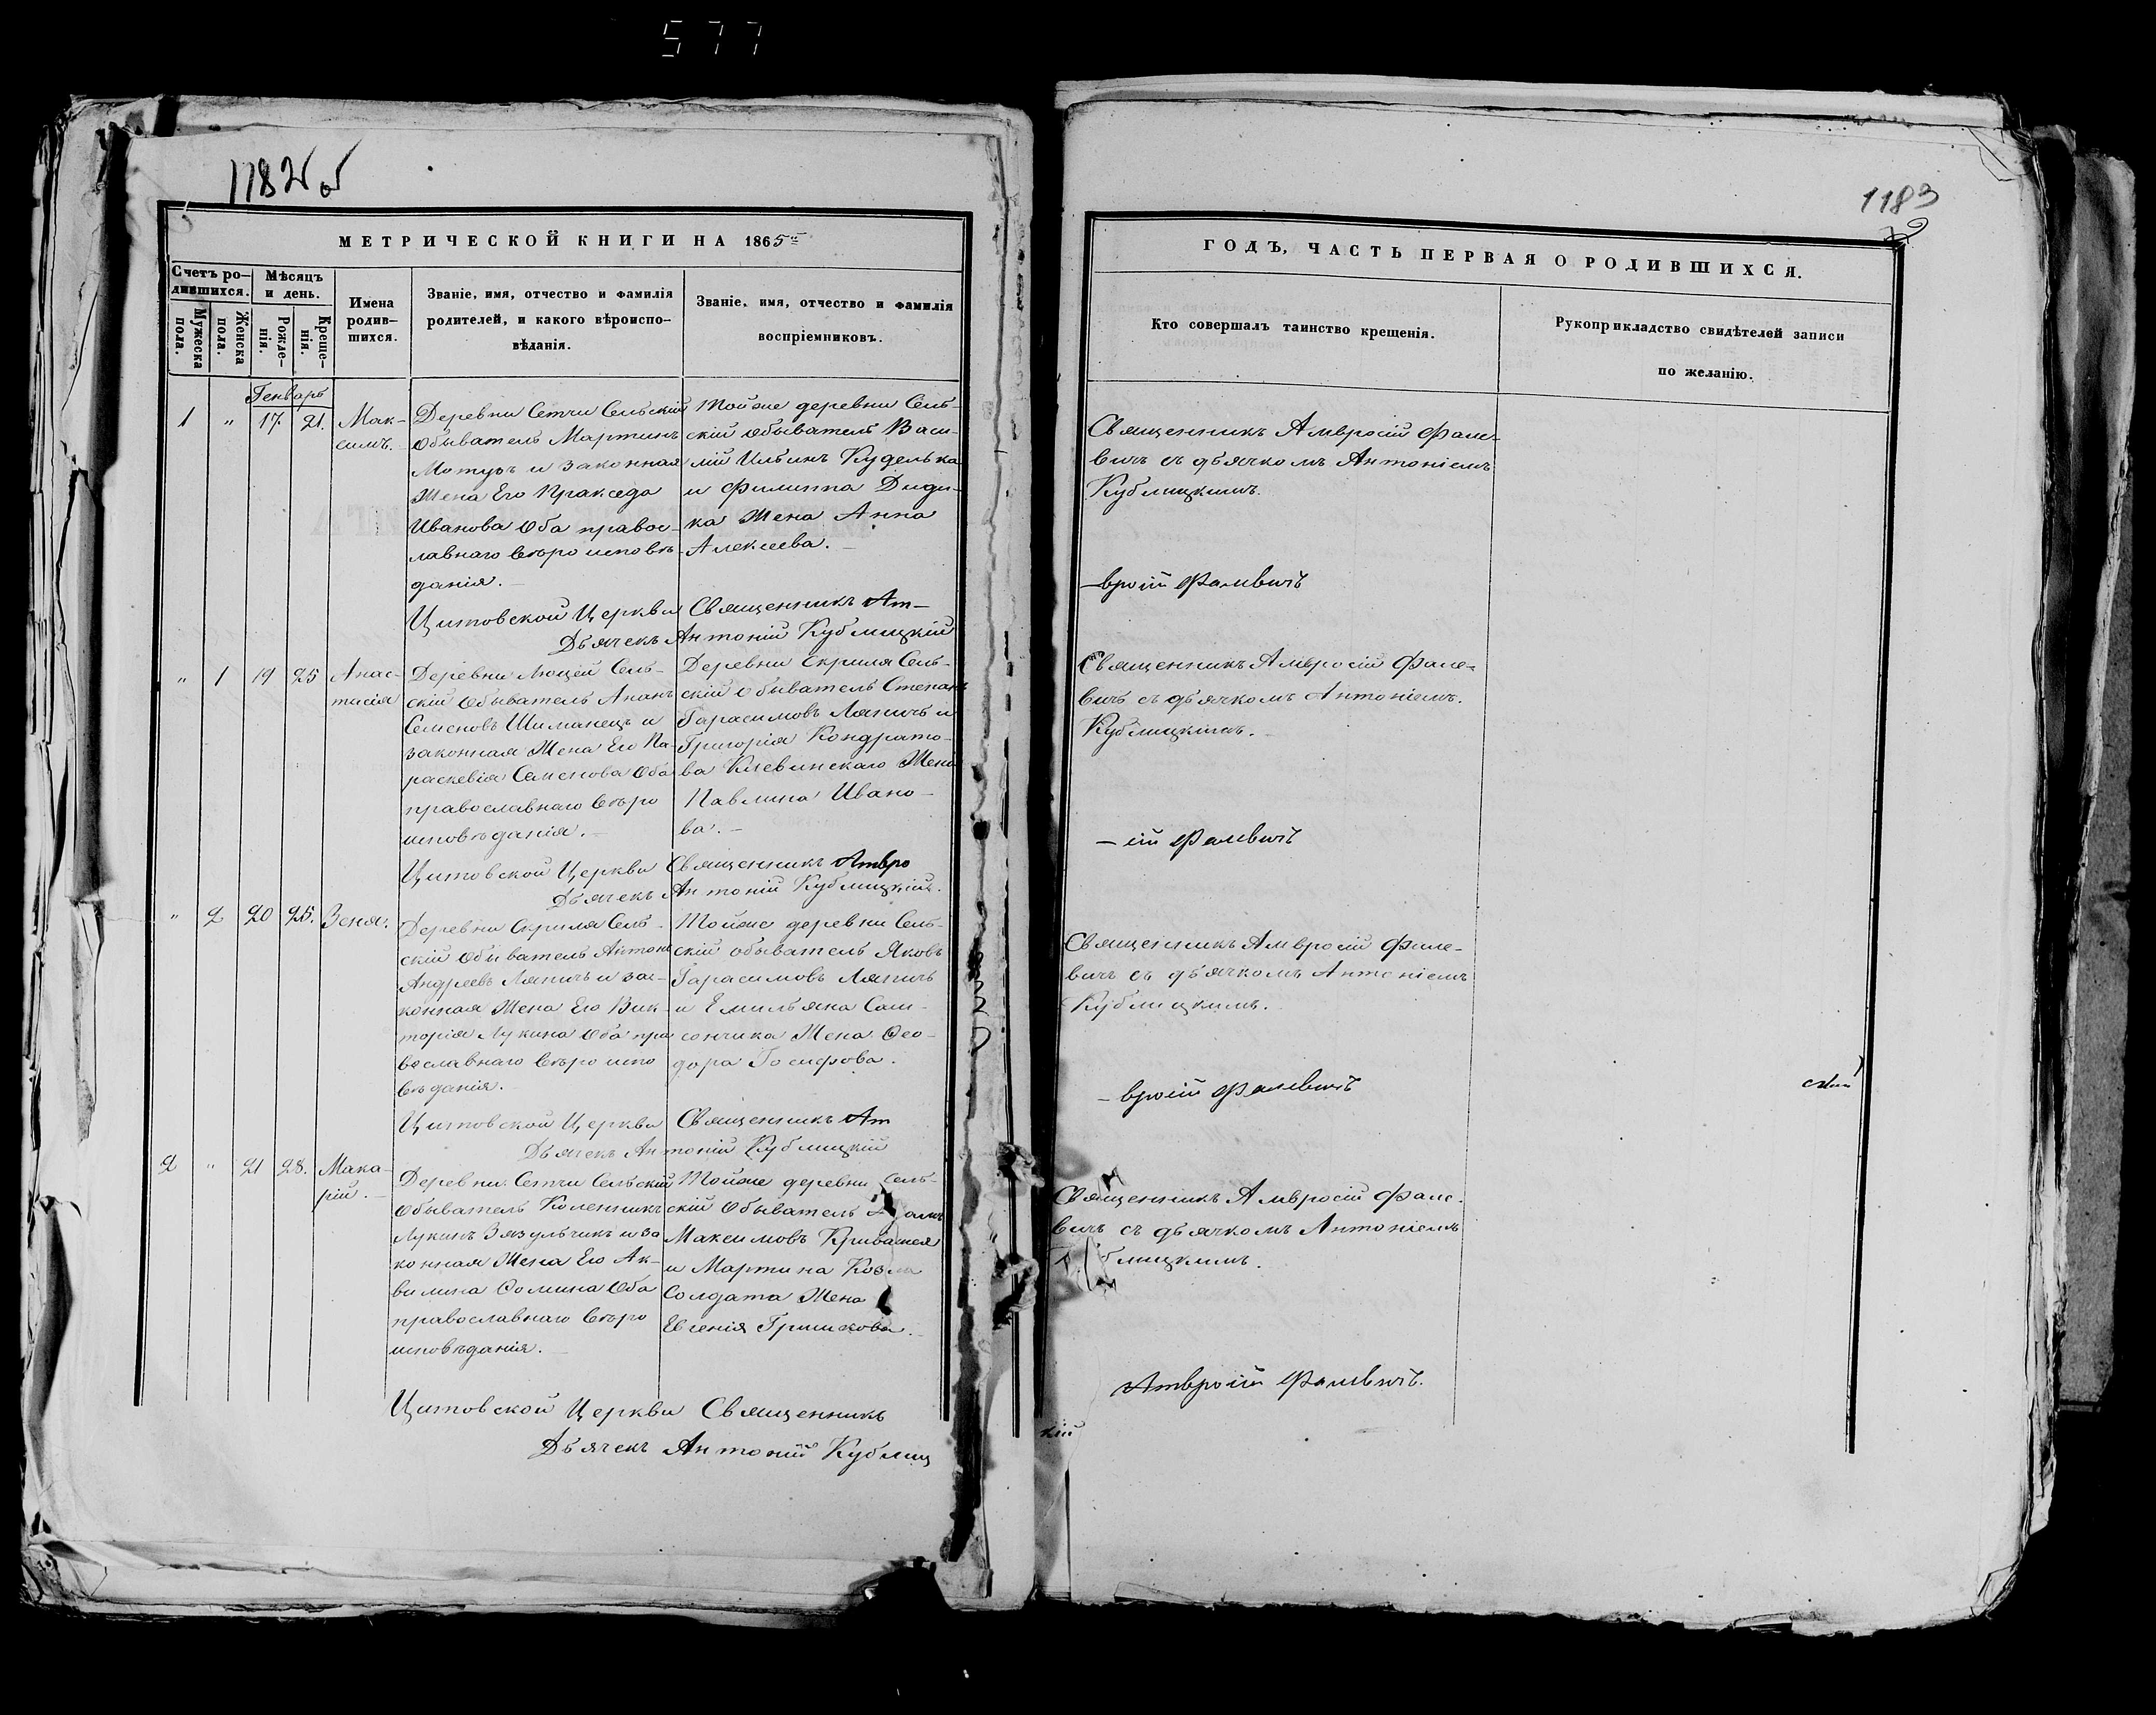 577
1182 об
МЕТРИЧЕСКОЙ КНИГИ НА 1865
Счетъ ро-
дившихся.
Мѣсяцъ
и день.
Мужеска
пола.
Женска
пола.
Рожде-
нія.
Креще-
нія.
Имена
родив-
шихся.
Званіе, имя, отчество и фамилія
родителей, и какого вѣроиспо-
вѣданія.
Званіе, имя, отчество и фамилія
воспріемниковъ.
Генварь
1 " 17. 21.
Мак-
симъ.
Деревни Сетчи Сельскій
Обыватель Мартинъ
и законная
Жена Его Пракседа
Иванова Оба правос-
лавнаго Вѣроисповѣ-
данія.
Тойже деревни Сель-
скій обыватель Васи-
лій Ильинъ Куделька
и Филиппа Диди-
ка Жена Анна
Алексеева.
Цитовской Церкви Священникъ Ам-
Дьячекъ Антоній Кублицкій
" 1 19 25
Анас-
тасія
Деревни Лющей Сель-
скій Обыватель Анань
Семеновъ Шиманецъ и
законная Жена Его Па-
раскевія Семенова Оба
православнаго Вѣро
исповѣданія.
Деревни Скриля Сель-
скій Обыватель Степанъ
Гарасимовъ Ляпичъ и
Григорія Кондрато-
ва Клевинскаго Жена
Павлина Ивано-
ва.
Цитовской Церкви Священникъ Амвро
Дьячекъ Антоній Кублицкій.
" 2 20 25.
Зеня.
Деревни Скриля Сель-
скій Обыватель Антонъ
Андреевъ Ляпичъ и за-
конная Жена Его Вик-
торія Лукина Оба пра
вославнаго Вѣроиспо
вѣданія.
Тойже деревни Сель-
скій обыватель Яковъ
Гарасимовъ Ляпичъ
и Емильяна Сам-
сончика Жена Ѳео-
дора Іосифова.
Цитовской Церкви Священникъ Ам
Дьячекъ Антоній Кублицкій
2 " 21 28.
Мака-
рій.
Деревни Сетчи Сельскій
Обыватель Коленникъ
Лукинъ Зязульчикъ и за
конная Жена Его Ак-
вилина Ѳомина Оба
православнаго Вѣро
исповѣданія.
Тойже деревни Сель-
скій Обыватель
Максимовъ
и Мартина Козла
Солдата Жена
Евгенія
Цитовской Церкви Священникъ
Дьячекъ Антоній Кублиц
1183
ГОДЪ, ЧАСТЬ ПЕРВАЯ О РОДИВШИХСЯ.
Кто совершалъ таинство крещенія.
Рукоприкладство свидѣтелей записи
по желанію.
Священникъ Амвросій Фале-
вичъ съ дьячкомъ Антоніемъ
Кублицкимъ.
-вросій Фалевичъ
Священникъ Амвросій Фале-
вичъ съ дьячкомъ Антоніемъ.
Кублицкимъ.
-сій Фалевичъ
Священникъ Амвросій Фале-
вичъ съ дьячкомъ Антоніемъ
Кублицкимъ.
-вросій Фалевичъ
Священникъ Амвросій Фале-
вичъ съ дьячкомъ Антоніемъ
Кублицкимъ.
Амвросій Фалевичъ.
кій